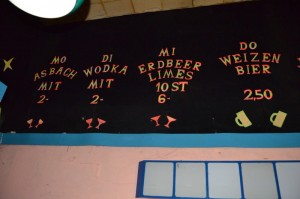 MO
ASBACH
MIT
2-
DI
WODKA
MIT
2-
MI
ERDBEER
LIMES
10 ST
6-
DO
WEIZEN
BIER
2,50